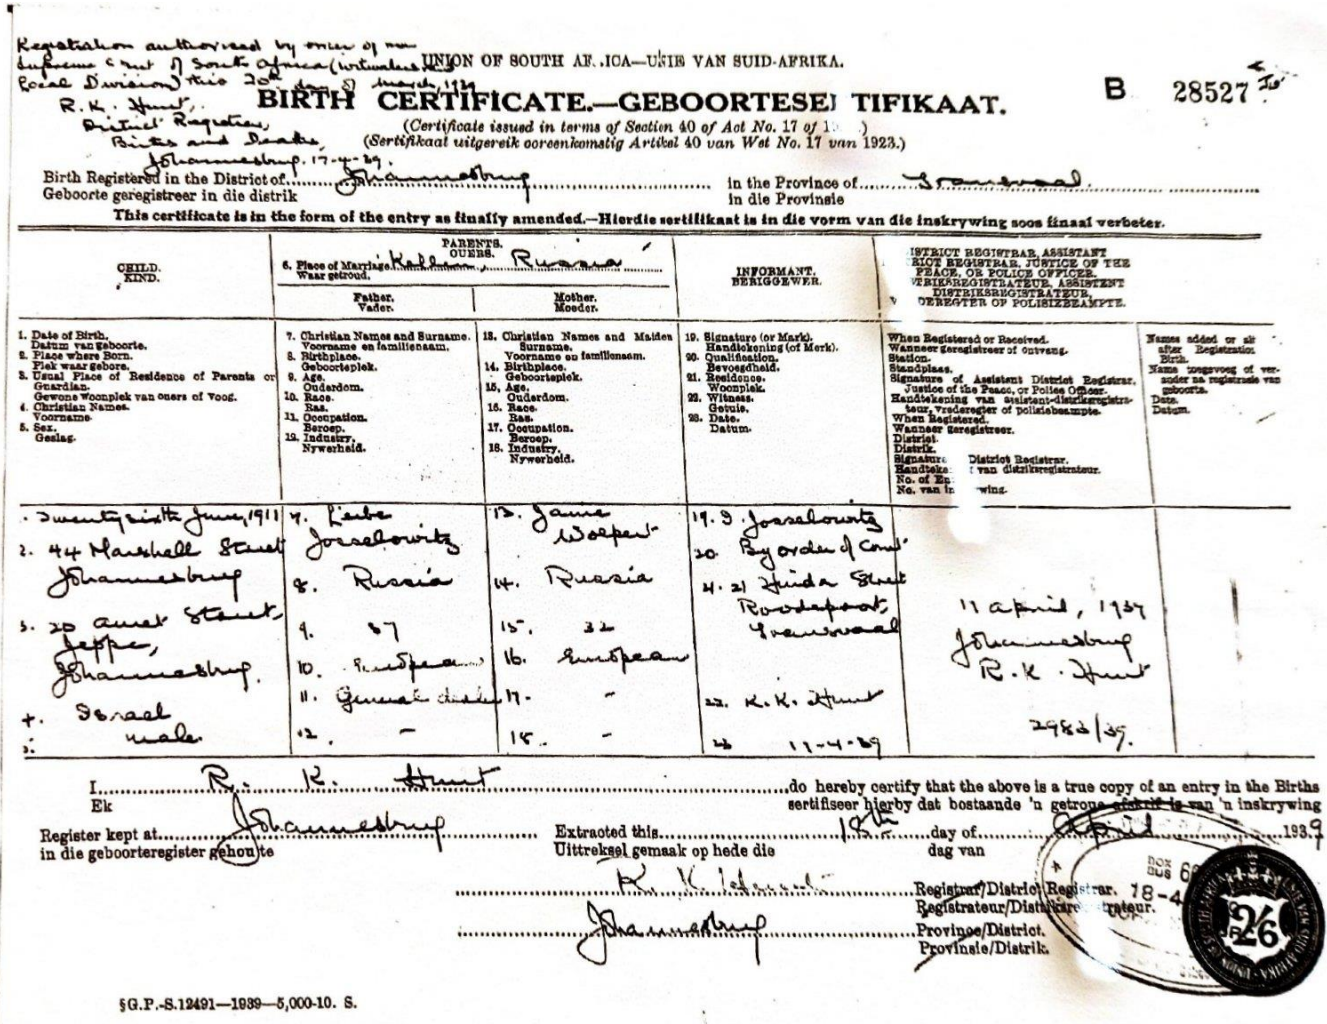 Registration authorised by order of
Supreme Court of South Africa (Witwatersrand
Local Division) this 20th day of March, 1939
R. K. Hunt,
District Registrar,
Births and Deaths,
Johannesburg. 17-4-39.
UNION OF SOUTH AF. .ICA—UNIE VAN SUID-AFRIKA.
B 28527
BIRTH CERTIFICATE.—GEBOORTESE TIFIKAAT.
(Certificate issued in terms of Section 40 of Act No. 17 of 1 )
(Sertifikaat uitgereik ooreenkomstig Artikel 40 van Wet No. 17 van 1923.)
Birth Registered in the District of Johannesburg in the Province of Transvaal
Geboorte geregistreer in die distrik in die Provinsie
This certificate is in the form of the entry as finally amended.—Hierdie sertifikaat is in die vorm van die inskrywing soos finaal verbeter.
CHILD.
KIND.
PARENTS.
OUERS.
6. Place of Marriage Russia
Waar getroud.
Father.
Vader.
Mother.
Moeder.
INFORMANT.
BERIGGEWER.
ISTRICT REGISTRAR, ASSISTANT
RICT REGISTRAR, JUSTICE OF THE
PEACE, OR POLICE OFFICER.
TRIKSREGISTRATEUR, ASSISTENT
DISTRIKSREGISTRATEUR,
DEREGTER OF POLISIEBEAMPTE.
1. Date of Birth.
Datum van geboorte.
2. Place where Born.
Plek waar gebore.
3. Usual Place of Residence of Parents or
Guardian.
Gewone Woonplek van ouers of Voog.
4. Christian Names.
Voorname.
5. Sex.
Geslag.
7. Christian Names and Surname.
Voorname en familienaam.
8. Birthplace.
Geboorteplek.
9. Age.
Ouderdom.
10. Race.
Ras.
11. Occupation.
Beroep.
12. Industry.
Nywerheid.
13. Christian Names and Maiden
Surname.
Voorname en familienaam.
14. Birthplace.
Geboorteplek.
15. Age.
Ouderdom.
16. Race.
Ras.
17. Occupation.
Beroep.
18. Industry.
Nywerheid.
19. Signature (or Mark).
Handtekening (of Merk).
20. Qualification.
Bevoegdheid.
21. Residence.
Woonplek.
22. Witness.
Getuie.
23. Date.
Datum.
When Registered or Received.
Wanneer geregistreer of ontvang.
Station.
Standplaas.
Signature of Assistant District Registrar,
Justice of the Peace, or Police Officer.
Handtekening van assistent-distriksregistra-
teur, vrederegter of polisiebeampte.
When Registered.
Wanneer geregistreer.
District.
Distrik.
Signature District Registrar.
Handteke van distriksregistrateur.
No. of En
No. van in wing.
Names added or alt
after Registration
Birth.
Name toegevoeg of ver-
ander na registrasie van
geboorte.
Date.
Datum.
Twenty sixth June, 1911
2. 44 Marshall Street
Johannesburg
3. 20 Street,
Jeppe,
Johannesburg.
4. Israel
5. male
7. Leibe
Josselowitz
8. Russia
9. 37
10. European
11. General dealer
12. –
13.
Wolpert
14. Russia
15. 32
16. European
17. –
18. –
19. I. Josselowitz
20. By order of Court
21 Street
Roodepoort,
Transvaal
22. R. K. Hunt
23 11-4-39
11 April, 1939
Johannesburg
R. K. Hunt
2983/39.
I R. K. Hunt do hereby certify that the above is a true copy of an entry in the Births
Ek sertifiseer hierby dat bostaande 'n getroue afskrif is van 'n inskrywing
Register kept at Johannesburg Extracted this 18th day of April 1939
in die geboorteregister gehou te Uittreksel gemaak op hede die dag van
R. K. Hunt Registrar/District Registrar.
Registrateur/Distriksre trateur.
Johannesburg Province/District.
Provinsie/Distrik.
BOX
BUS 
18-4
2/6
§G.P.-S.12491—1939—5,000-10. S.